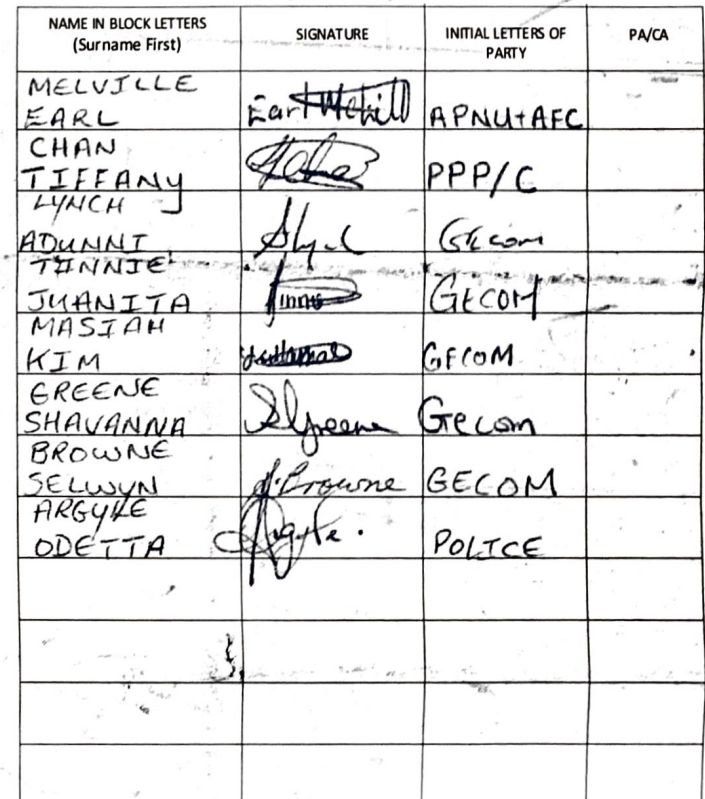 NAME IN BLOCK LETTERS
(Surname First)
SIGNATURE
INITIAL LETTERS OF
PARTY
PA/CA
MELVILLE
EARL
Earl
APNU+AFC
CHAN
TIFFANY
PPP/C
LYNCH
ADUNNI
GEcom
TINNIE
JUANITA
Tinnie
GECOM
MASIAH
KIM
GECOM
GREENE
SHAVANNA
SGreene
Gecom
BROWNE
SELWYN
S. Browne
GECOM
ARGYLE
ODETTA
Argyle.
POLICE